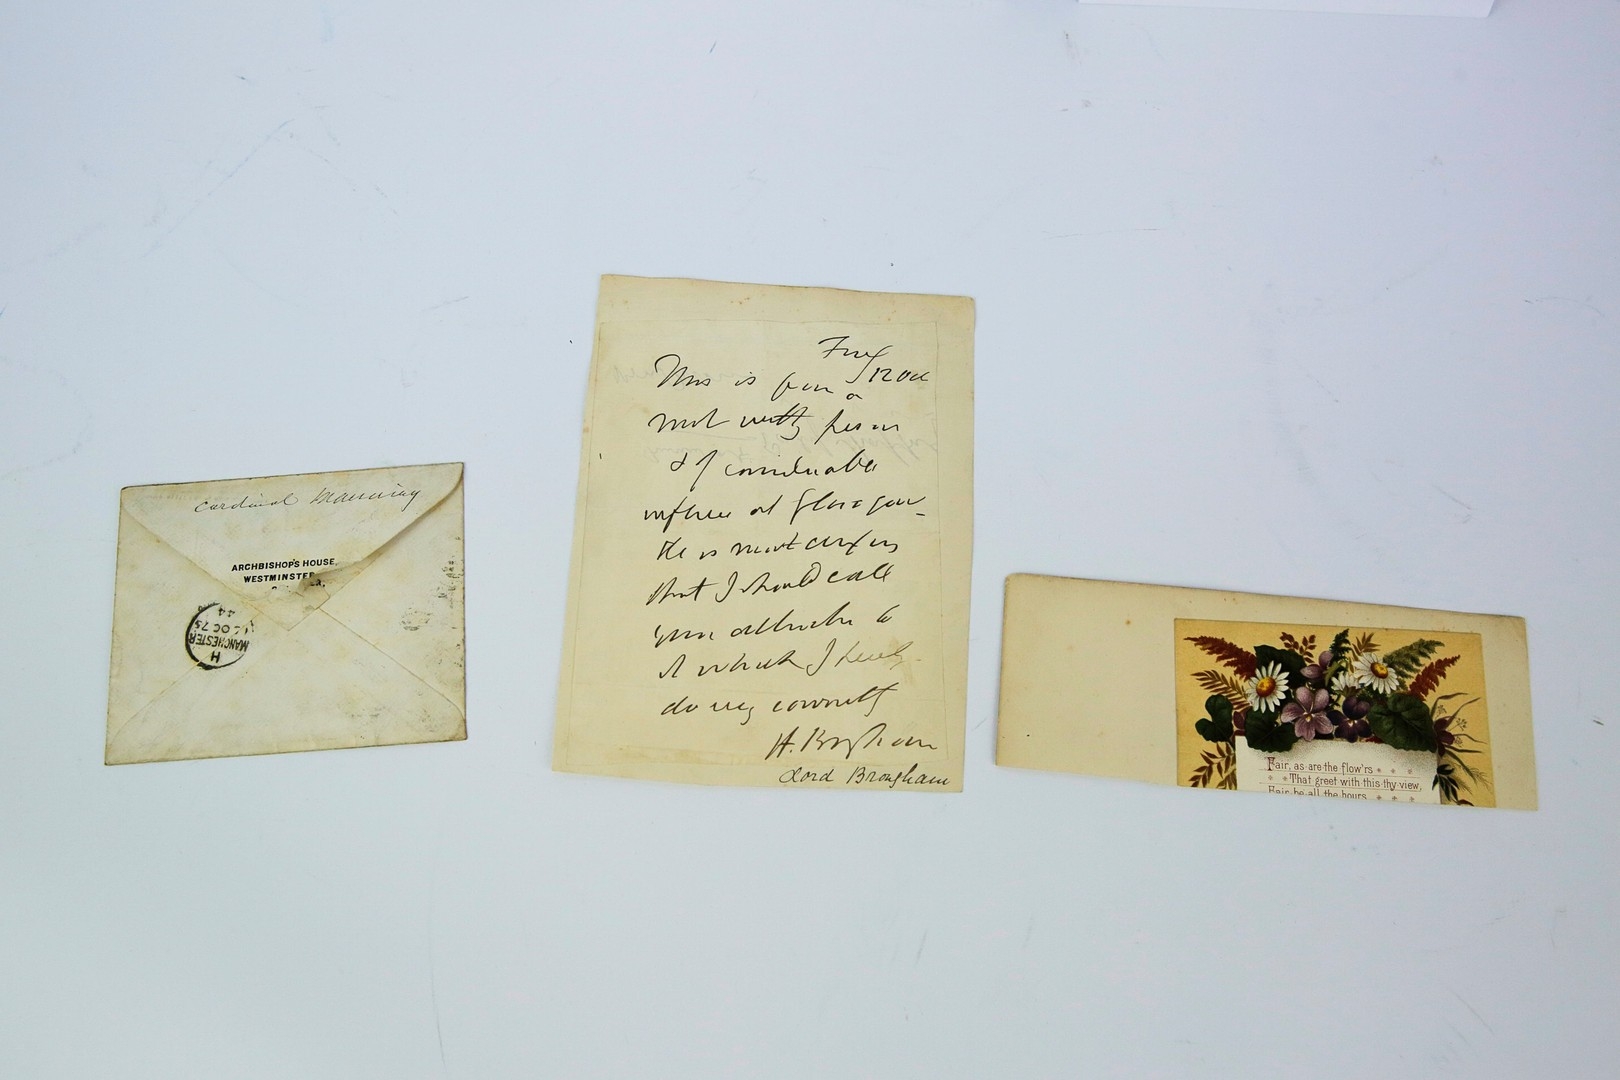 Cardinal Manning
ARCHBISHOP'S HOUSE,
WESTMINSTER
H
MANCHESTER
OC 75
44
This is from a
most worthy person
& of considerable
influence at Glasgow_
He is most anxious
that I should call
your attention to
it which I hereby
do very earnestly
H. Brougham
Lord Brougham
Fair, as are the flow'rs * * *
* * That greet with this thy view,
Fair be all the hours * * *